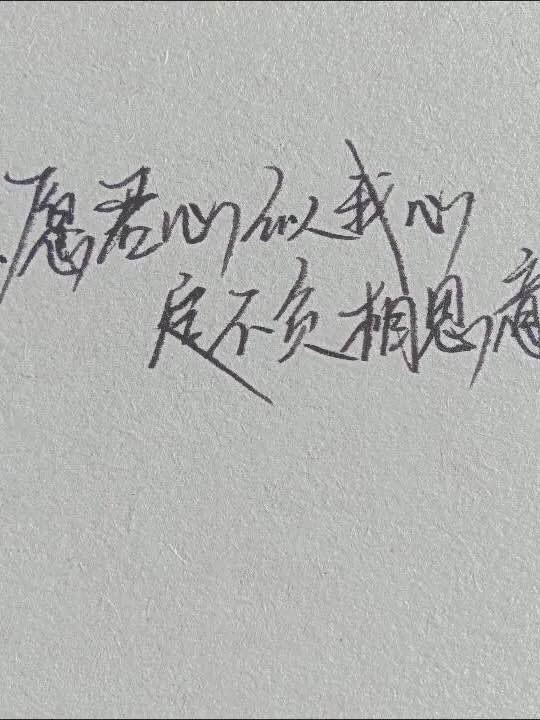 愿君心似我心
定不负相思意